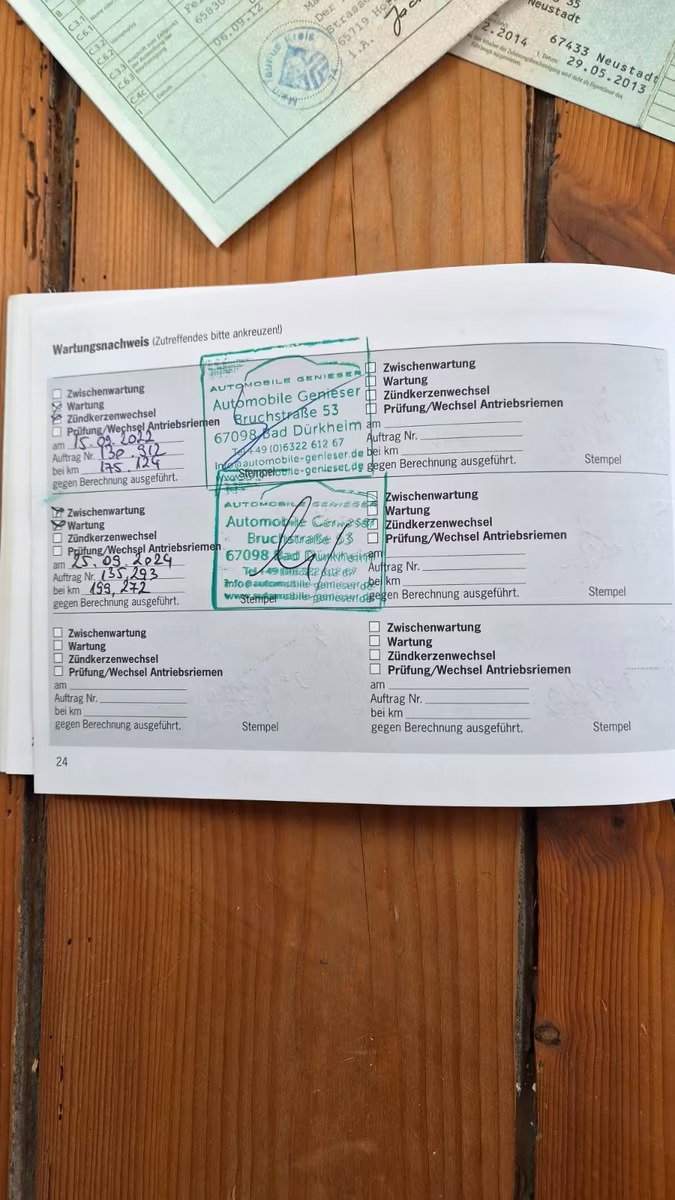 C.3.1
C.6.1
C.3.2
C.6.2
C.3.3
C.6.3
C.4c
I
Datum
06.09.12
Main-Taunus-Kreis
Der
65719 Ho
i.A.
35
Neustadt
2.2014
67433 Neustadt
I Datum:
29.05.2013
Wartungsnachweis (Zutreffendes bitte ankreuzen!)
Zwischenwartung
Wartung
Zündkerzenwechsel
Prüfung/Wechsel Antriebsriemen
am 15.09.2022
Auftrag Nr. 130.912
bei km 175.124
gegen Berechnung ausgeführt.
AUTOMOBILE GENIESER
Automobile Genieser
Bruchstraße 53
67098 Bad Dürkheim
Tel +49 (0)6322 612 67
Info@automobile-genieser.de
Stempel
Zwischenwartung
Wartung
Zündkerzenwechsel
Prüfung/Wechsel Antriebsriemen
am
Auftrag Nr.
bei km
gegen Berechnung ausgeführt.
Stempel
Zwischenwartung
Wartung
Zündkerzenwechsel
Prüfung/Wechsel Antriebsriemen
am 25.09.2024
Auftrag Nr. 135,293
bei km 199,272
gegen Berechnung ausgeführt.
AUTOMOBILE GENIESER
Automobile Genieser
Bruchstraße 53
67098 Bad Dürkheim
Tel +49 (0)6322 612 67
Info@automobile-genieser.de
www.automobile-genieser.de
Stempel
Zwischenwartung
Wartung
Zündkerzenwechsel
Prüfung/Wechsel Antriebsriemen
am
Auftrag Nr.
bei km
gegen Berechnung ausgeführt.
Stempel
Zwischenwartung
Wartung
Zündkerzenwechsel
Prüfung/Wechsel Antriebsriemen
am
Auftrag Nr.
bei km
gegen Berechnung ausgeführt.
Stempel
Zwischenwartung
Wartung
Zündkerzenwechsel
Prüfung/Wechsel Antriebsriemen
am
Auftrag Nr.
bei km
gegen Berechnung ausgeführt.
Stempel
24